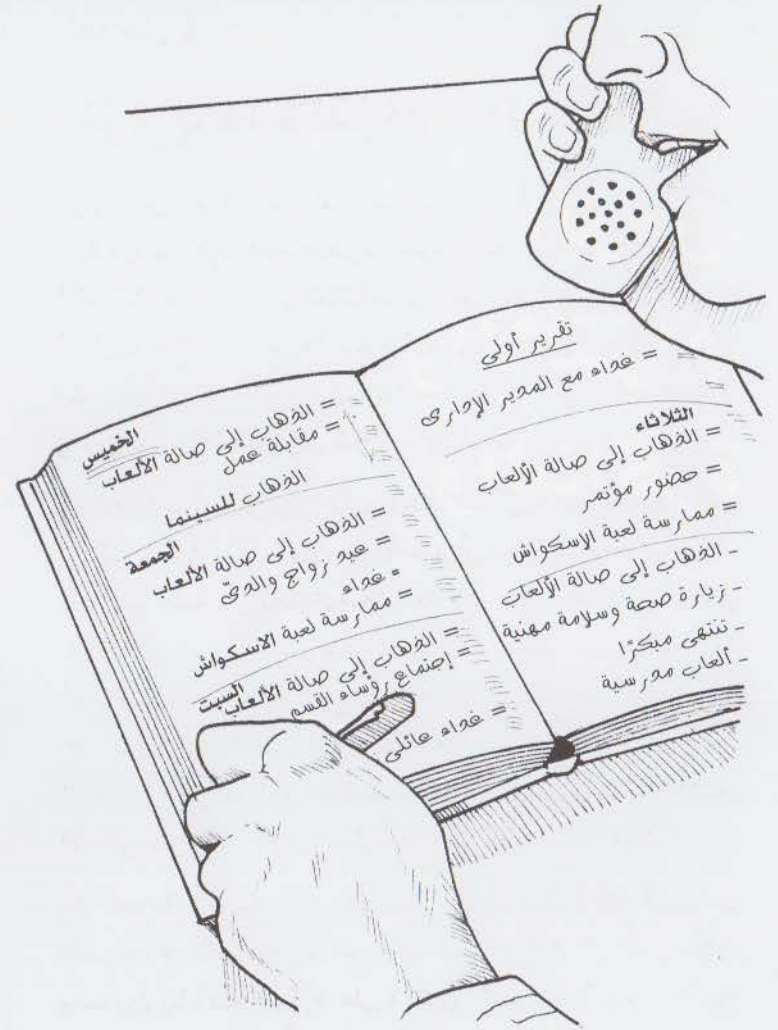 تقرير أولى
= غداء مع المدير الإدارى
الثلاثاء
= الذهاب إلى صالة الألعاب
= حضور مؤتمر
= ممارسة لعبة الاسكواش
- الذهاب إلى صالة الألعاب
- زيارة صحة وسلامة مهنية
- تنتهى مبكرًا
- ألعاب مدرسية
الخميس
= الذهاب إلى صالة الألعاب
= مقابلة عمل
الذهاب للسينما
الجمعة
= الذهاب إلى صالة الألعاب
= عيد زواج والدىّ
= غداء
= ممارسة لعبة الاسكواش
السبت
= الذهاب إلى صالة الألعاب
= إجتماع رؤساء القسم
= غداء عائلى